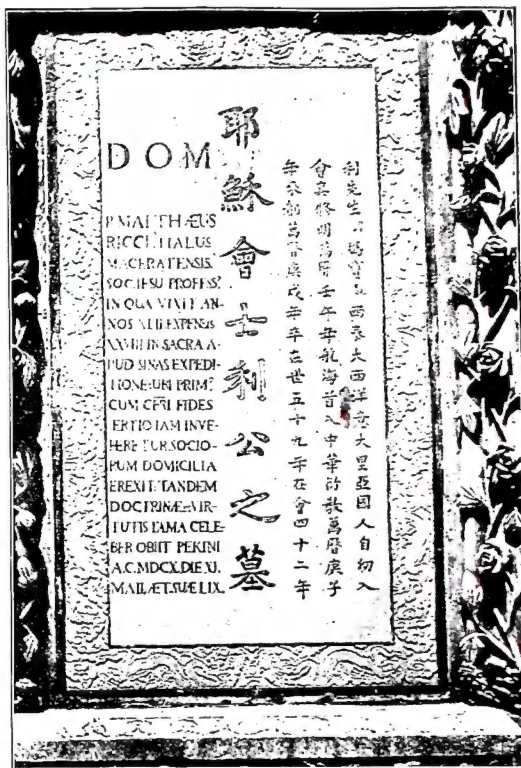 D O M
P. MATTHÆUS
RICCI ITALUS
MACERATENSIS.
SOC. IESU PROFESS?
IN QUA VIXIT AN-
NOS XLII EXPENSIS
XXVIII IN SACRA A-
PUD SINAS EXPEDI-
TIONE: UBI PRIM?
CUM CHRI FIDES
TERTIO IAM INVE-
HERETUR SOCIO-
RUM DOMICILIA
EREXIT. TANDEM
DOCTRINÆ & VIR-
TUTIS FAMA CELE-
BER OBIIT PEKINI
A.C. MDCX. DIE XI.
MAII. ÆT. SUÆ LIX.
耶穌會士利公之墓
利先生瑪竇西泰大西洋意大里亞國人自幼入
會真修明萬曆壬午年航海首入中華衍教萬曆庚子
年來都萬曆庚戌年卒在世五十九年在會四十二年